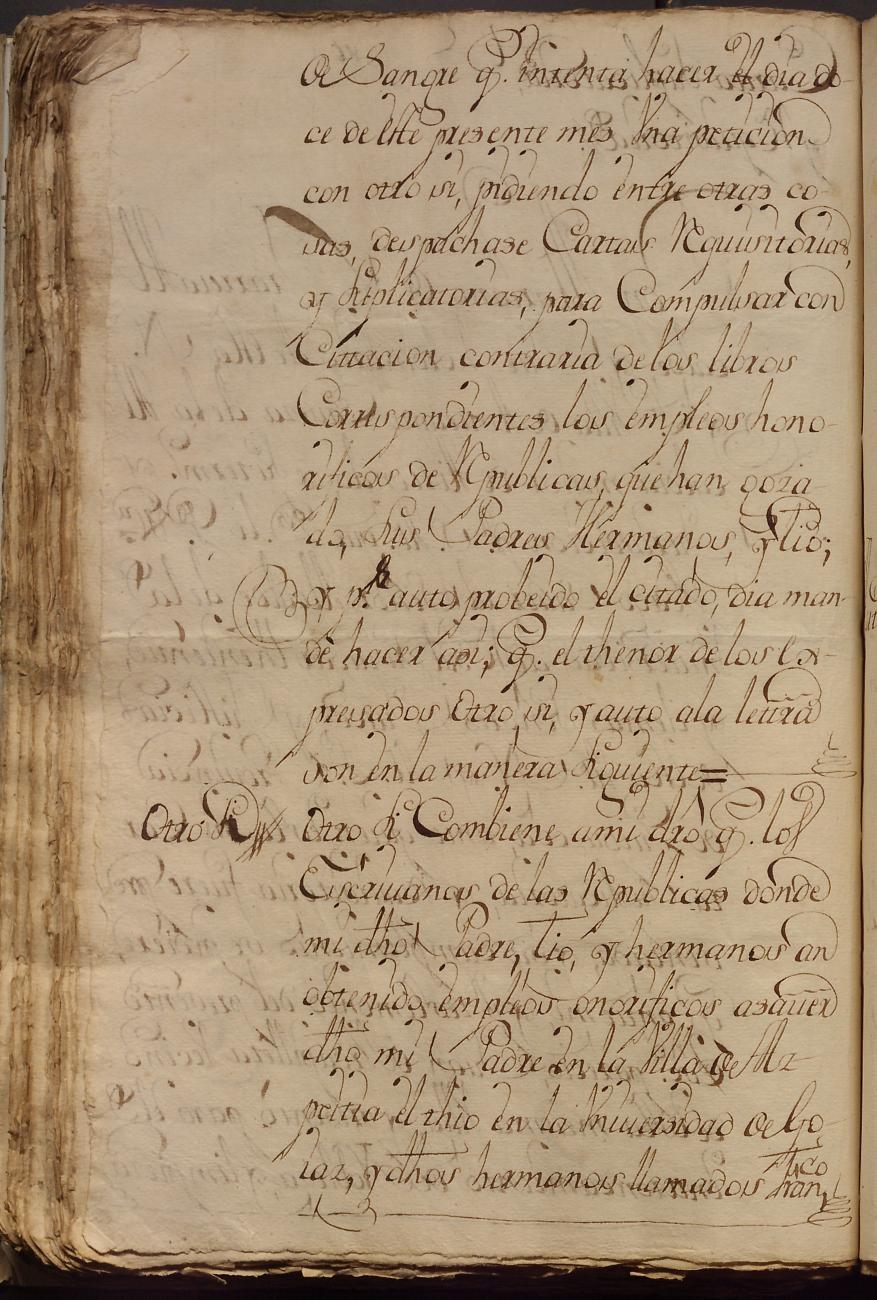 de Sangre q. intenta hacer el dia do-
ce de este presente mes Vna peticion
con otro si, pidiendo entre otras co-
sas, despachase Cartas Rquisitorias,
y Suplicatorias, para Compulsar con
Cittacion contraria de los libros
Correspondientes los empleos hono-
rificos de Rpublicas, que han goza-
do, sus Padres Hermanos, y tio;
y pr. auto probeido el citado, dia man-
de hacer asi; q. el thenor de los Ex-
presados Otro si, y auto ala lettra
son en la manera siguiente=
Otro Si Otro Si Combiene ami dro q. los
Escriuanos de las Rpublicas donde
mi dho Padre, tio, y hermanos an
obtenido empleos onorificos asauer
dho mi Padre en la Villa de Az-
peitia el thio en la Vniuersidad de Go-
iaz, y dhos hermanos llamados Franco